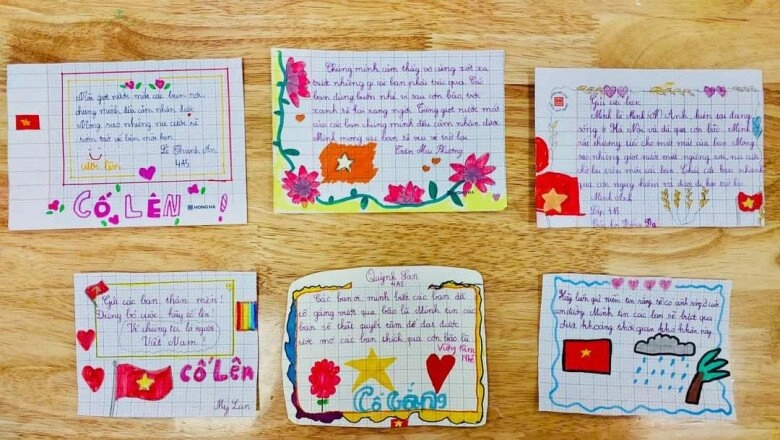 Mỗi giọt nước mắt các bạn rơi,
chúng mình đều cảm nhận được
Mong sao những nụ cười sẽ
sớm trở về bên môi bạn.
Lê Thanh An
4A5
CỐ LÊN !
HONG HA
Chúng mình cảm thấy vô cùng xót xa
trước những gì các bạn phải trải qua. Các
bạn đừng buồn nhé, vì sau cơn bão, trời
xanh sẽ lại sáng ngời. Từng giọt nước mắt
của các bạn chúng mình đều cảm nhận được.
Mình mong các bạn sẽ vui vẻ trở lại.
Trần Mai Phương
Gửi các bạn
Mình là Minh Anh, hiện tại đang
sống ở Hà Nội và đã qua cơn bão. Mình
rất thương tiếc cho mất mát của bạn. Mong
sao những giọt nước mắt ngừng rơi, nụ cười
trở lại trên môi các bạn. Chúc các bạn nhanh
qua cơn nguy hiểm và được đi học trở lại.
Minh Anh
Lớp 4A5
Gửi các bạn thân mến!
Đừng bỏ cuộc, hãy cố lên!
Vì chúng ta là người
Việt Nam!
CỐ LÊN
Mỹ Lan
Quỳnh Lan
4A5
Các bạn ơi mình biết các bạn đã
cố gắng vượt qua bão lũ. Mình tin các
bạn sẽ thật quyết tâm để đạt được
ước mơ các bạn thích qua cơn bão lũ
Vững tâm
Nhé
Cố Gắng
Hãy luôn giữ niềm tin rằng sẽ có ánh sáng ở cuối
con đường. Mình tin các bạn sẽ vượt qua
được khoảng thời gian khó khăn này.